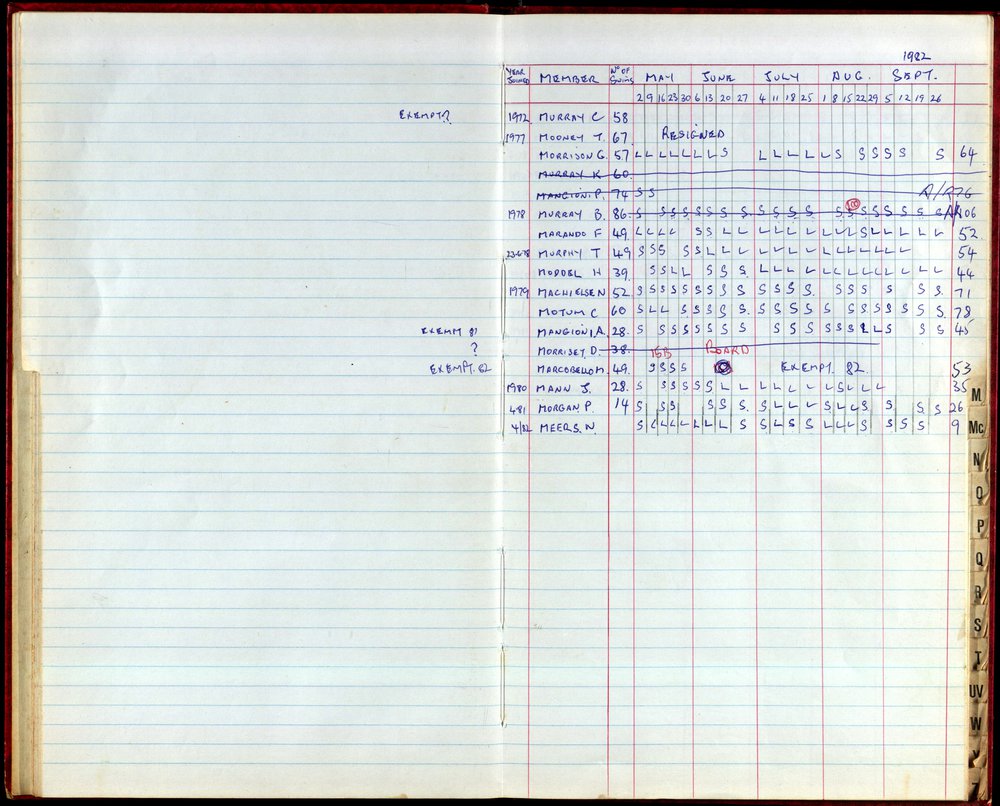 1982
YEAR JOINED MEMBER Nº OF SWIMS MAY JUNE JULY AUG. SEPT.
2 9 16 23 30 6 13 20 27 4 11 18 25 1 8 15 22 29 5 12 19 26
EXEMPT? 1972 MURRAY C 58
1977 MOONEY T. 67 RESIGNED
MORRISON G. 57 L L L L L L L S L L L L L S S S S S S 64
MURRAY K 60
MANGION. P. 74 S S A/R 76
1978 MURRAY B. 86 S S S S S S S S S S S S S 100 S S S S S S S 106
MARANDO F 49 L L L L S S L L L L L L L L L S L L L L L 52
23-6-78 MURPHY T 49 S S S S S L L L L L L L L L L L L L L 54
MODDEL H 39 S S L L S S S L L L L L L L L L L L L 44
1979 MACHIELSEN 52 S S S S S S S S S S S S S S S S S S S 71
MOTUM C 60 S L L S S S S S S S S S S S S S S S S S S S 78
EXEMPT 81 MANGIONI, A. 28 S S S S S S S S S S S S S S S L L S S S 45
? MORRISEY D. 38 15B BOARD
EXEMPT. 82 MARCOBELLO M. 49 S S S S EXEMPT. 82. 53
1980 MANN J. 28 S S S S S S L L L L L L L S L L L 35
4 81 MORGAN P. 14 S S S S S S S L L L S L L S S S S 26
4/82 MEERS. N S L L L L L L L S S L S S L L L S S S S 9
M
Mc
N
O
P
Q
R
S
T
UV
W